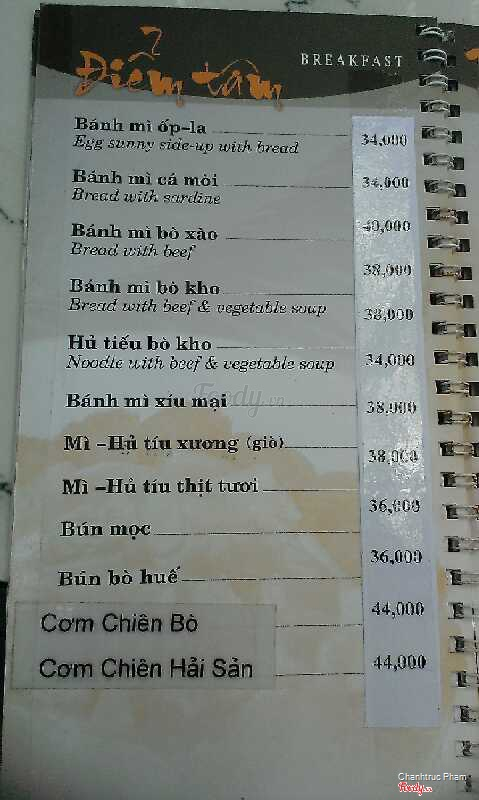 Điểm tâm
BREAKFAST
Bánh mì ốp-la 34,000
Egg sunny side-up with bread
Bánh mì cá mòi 34,000
Bread with sardine
Bánh mì bò xào 40,000
Bread with beef
Bánh mì bò kho 38,000
Bread with beef & vegetable soup
Hủ tiếu bò kho 38,000
Noodle with beef & vegetable soup
Bánh mì xíu mại 34,000
Mì -Hủ tíu xương (giò) 38,000
Mì -Hủ tíu thịt tươi 38,000
Bún mọc 36,000
Bún bò huế 36,000
Cơm Chiên Bò 44,000
Cơm Chiên Hải Sản 44,000
Foody.vn
Chanhtruc Pham
Foody.vn